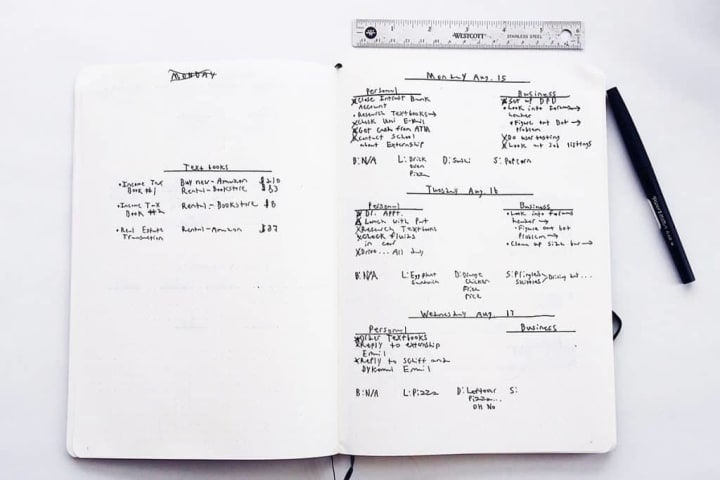 WESTCOTT
STAINLESS STEEL
MONDAY
Textbooks
• Income Tax Buy new - Amazon $210
Book #1 Rental - Bookstore $83
• Income Tax Rental - Bookstore $8
Book #2
• Real Estate Rental - Amazon $27
Transaction
Monday Aug. 15
Personal
Close Intrust Bank
Account
• Research Textbooks →
Check Uni E-mail
Get cash from ATM
Contact School
about Externship
Business
Set up DPD
• Look into
• Figure out Dot →
Problem
Do user testing
Look at Job listings
B: N/A L: Brick D: Sushi S: Popcorn
oven
Pizza
Tuesday Aug. 16
Personal
Dr. Appt.
Lunch with Pat
Research Textbooks
Check fluids
in car
Drive... All day
Business
• Look into
header →
• Figure out bot
Problem →
• Clean up size bar →
B: N/A L: Eggplant D: Orange S: Pringles Driving but...
Sandwich Chicken Skittles
Fried
rice
Wednesday Aug. 17
Personal
Order Textbooks
Reply to externship
Email
Reply to Schiff and
Email
Business
B: N/A L: Pizza D: Leftover S:
Pizza...
Oh No